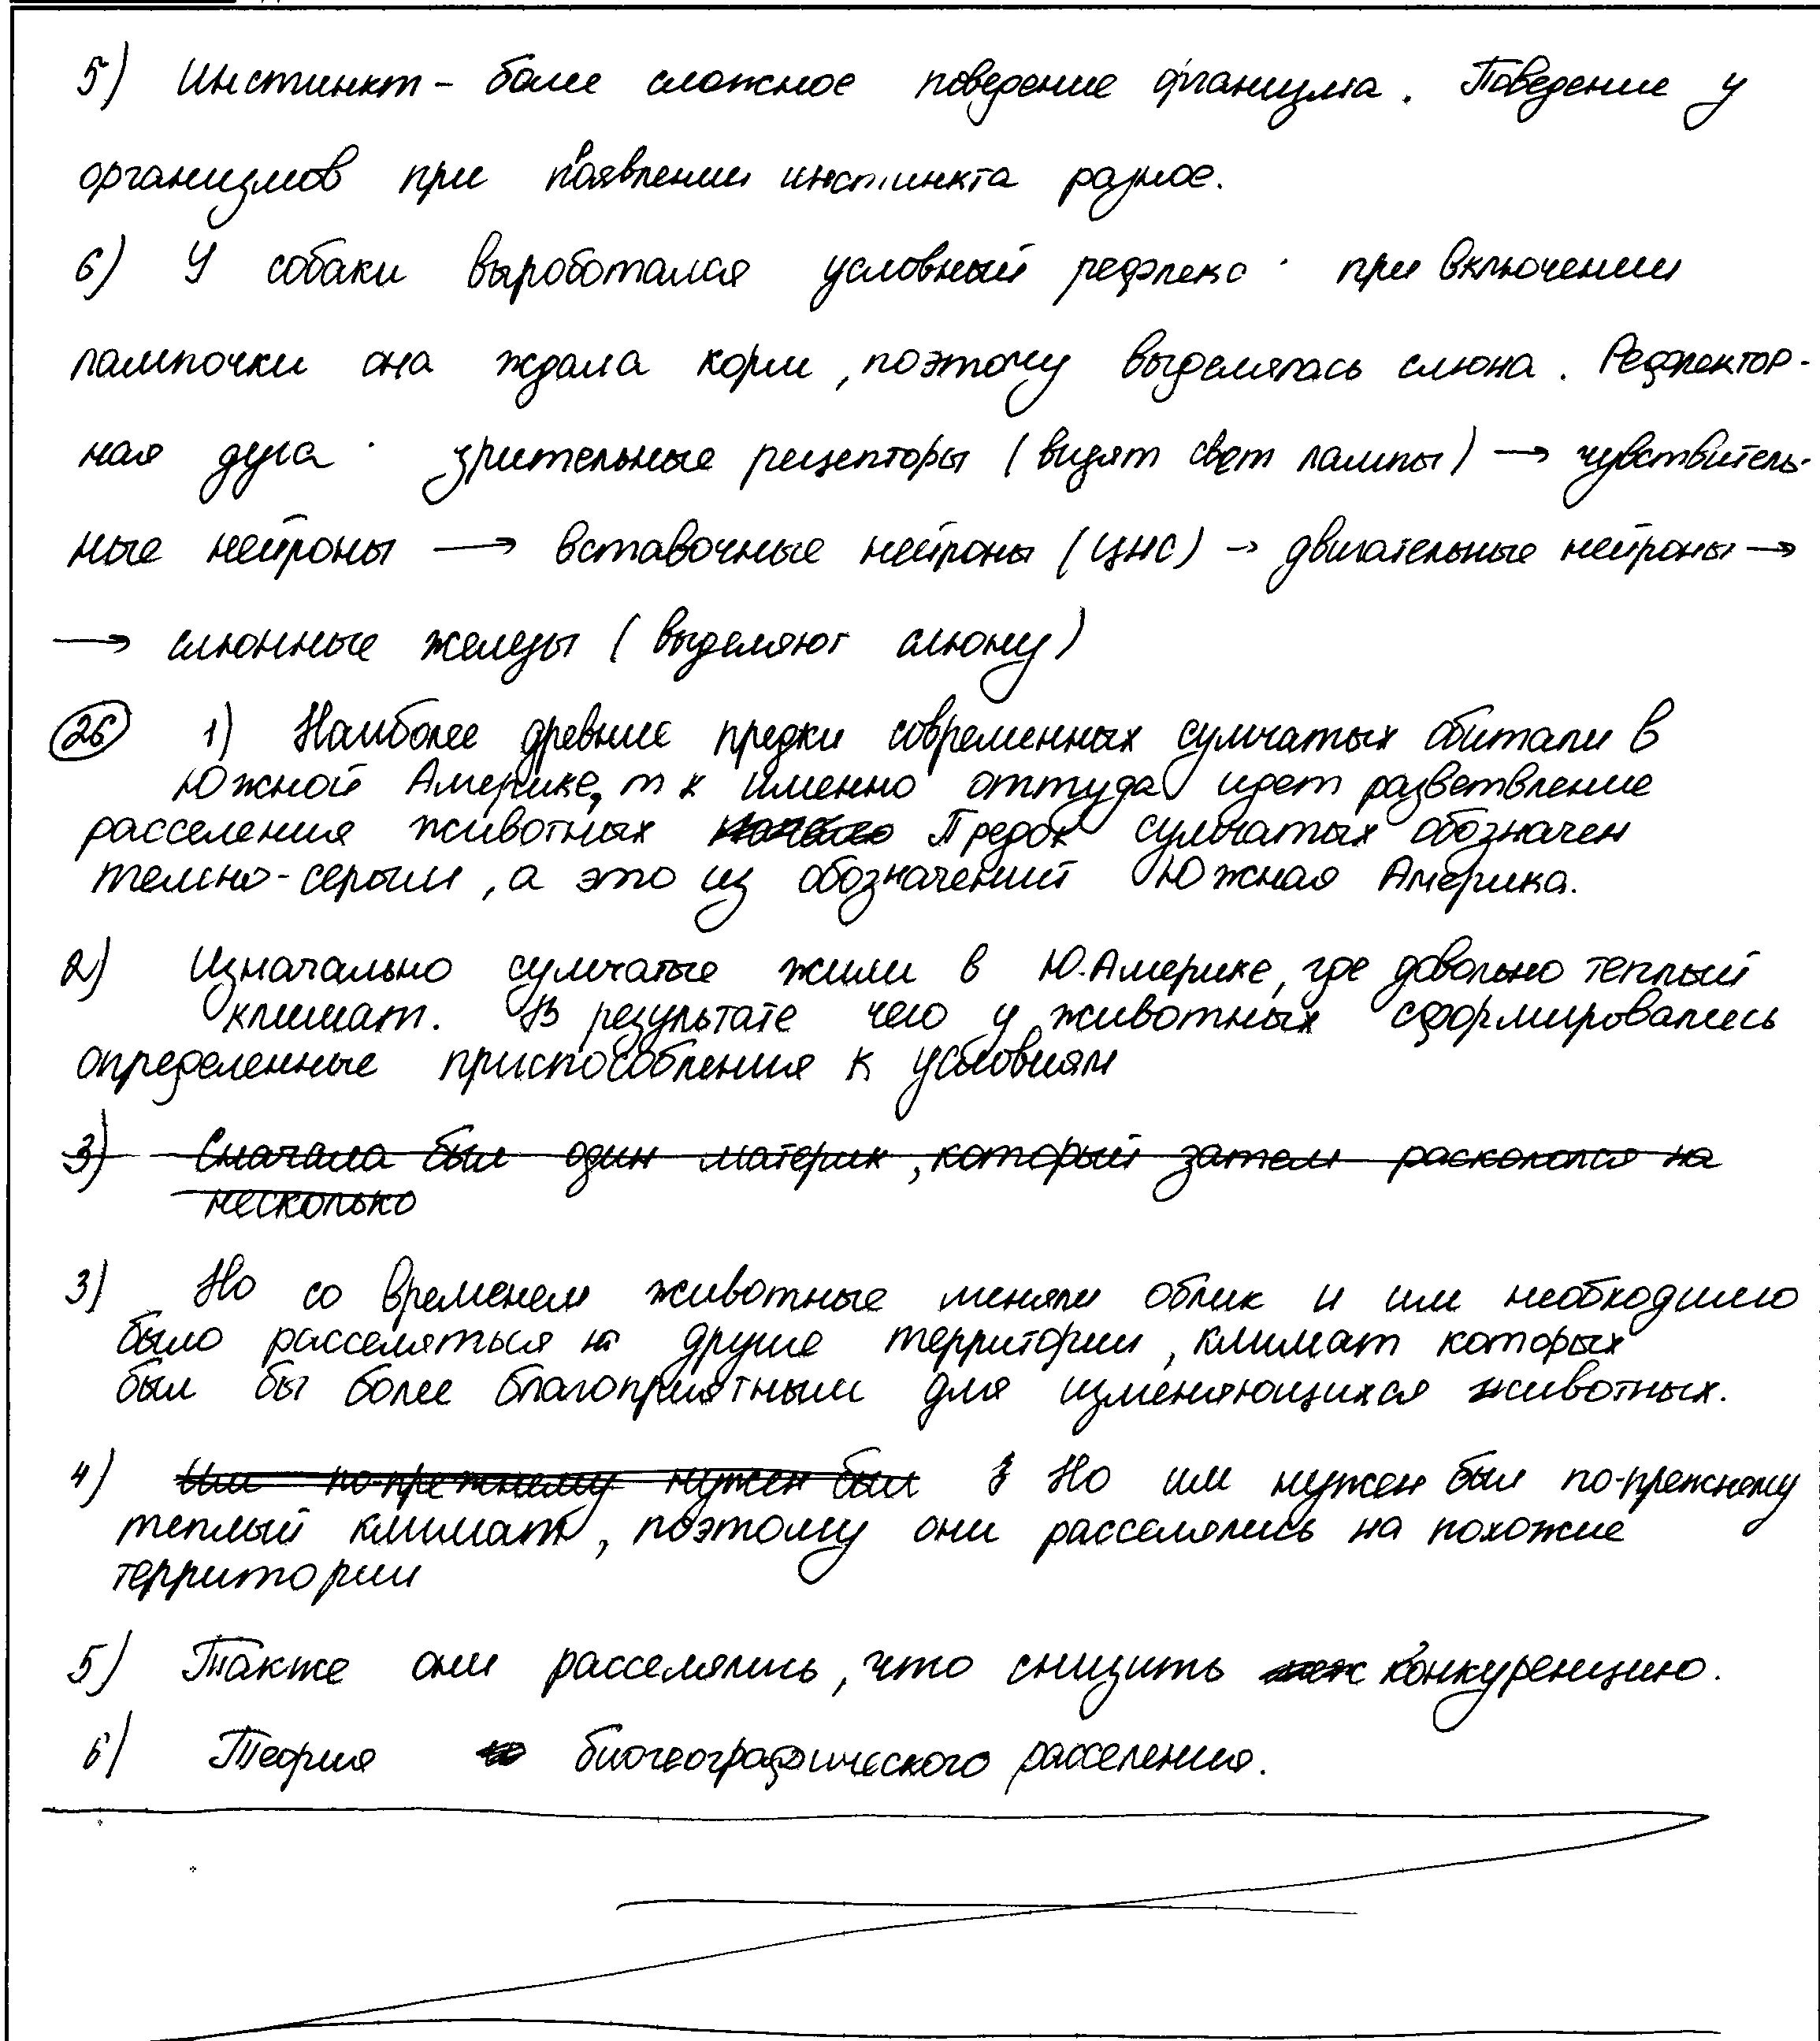 5) Инстинкт – более сложное поведение организма. Поведение у
организмов при появлении инстинкта разное.
6) У собаки выроботался условный рефлекс · при включении
лампочки она ждала корм, поэтому выделялась слюна. Рефлектор-
ная дуга · зрительные рецепторы (видят свет лампы) → чувствитель-
ные нейроны → вставочные нейроны (ЦНС) → двигательные нейроны →
→ слюнные железы (выделяют слюну)
26 1) Наиболее древние предки современных сумчатых обитали в
Южной Америке, т к именно оттуда идет разветвление
расселения животных Предок сумчатых обозначен
темно-серым, а это из обозначений Южная Америка.
2) Изначально сумчатые жили в Ю.Америке, где довольно теплый
климат. В результате чего у животных сформировались
определенные приспособления к условиям
3) Сначала был один материк, который затем раскололся на
несколько
3) Но со временем животные меняли облик и им необходимо
было расселяться на другие территории, климат которых
был бы более благоприятным для изменяющихся животных.
4) Им по-прежнему нужен был Но им нужен был по-прежнему
теплый климат, поэтому они расселялись на похожие
территории
5) Также они расселялись, что снизить конкуренцию.
6) Теория биогеографического расселения.